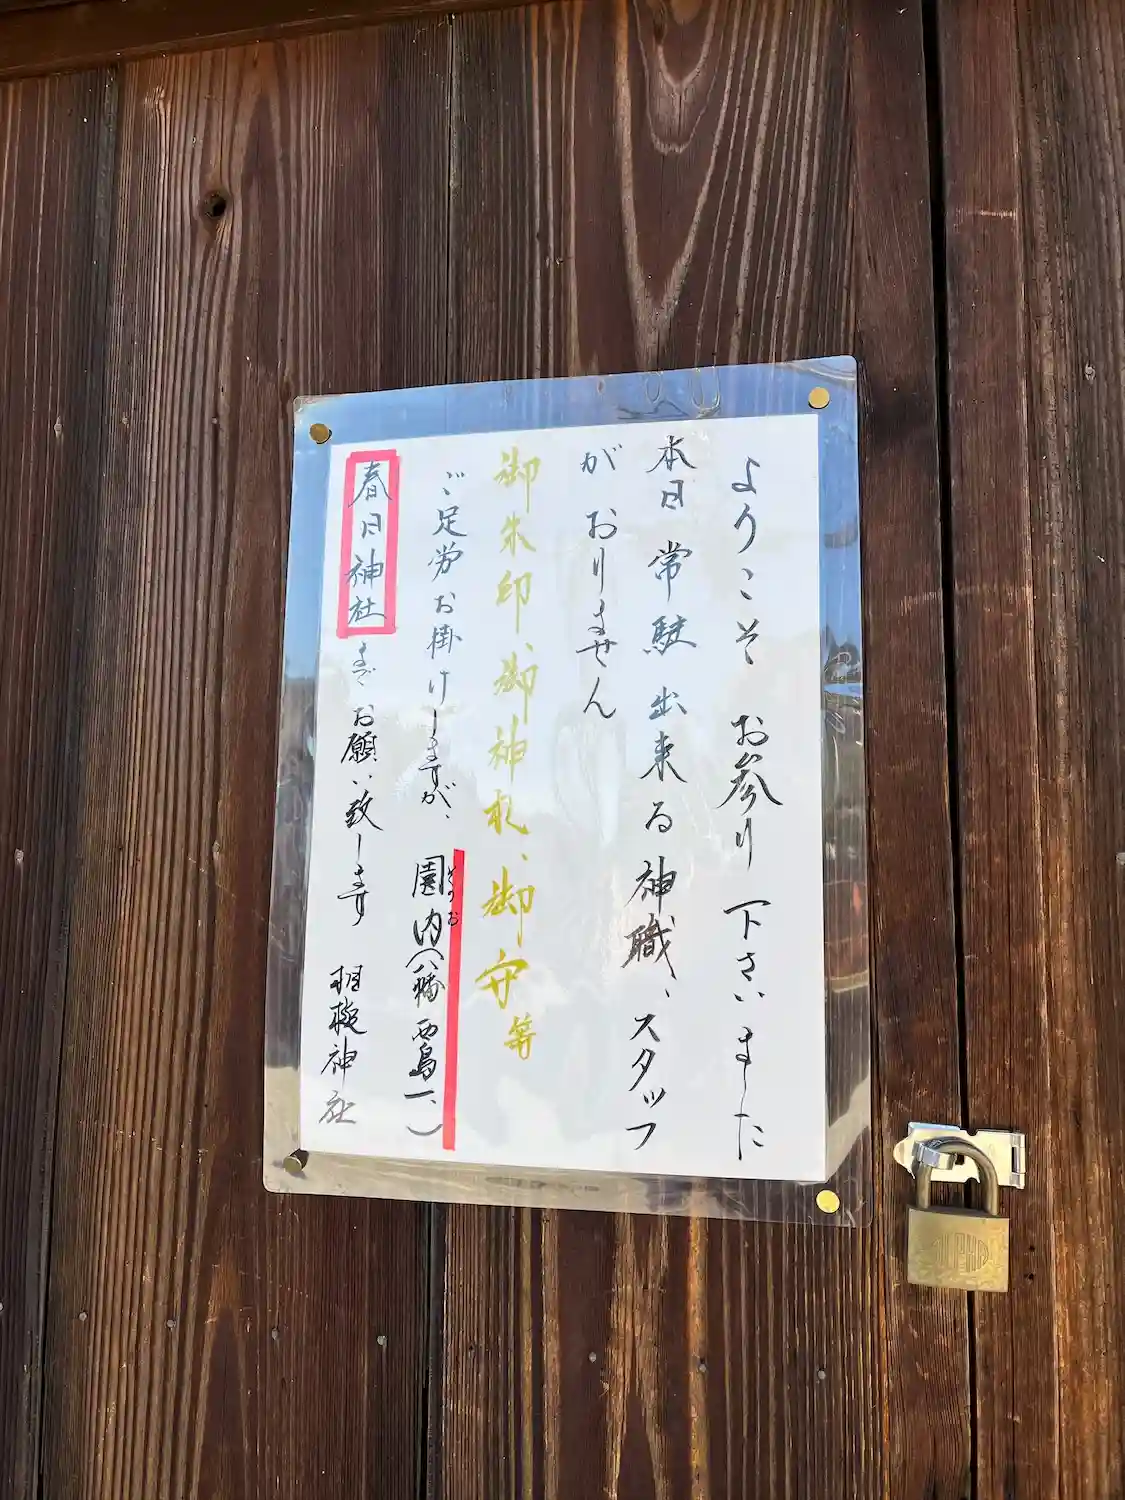 ようこそ お参り下さいました
本日 常駐 出来る神職、スタッフ
が おりません
御朱印、御神札、御守等
ご足労お掛けしますが、園内(八幡西島一、)
春日神社までお願い致します 相椒神社
ALPHA